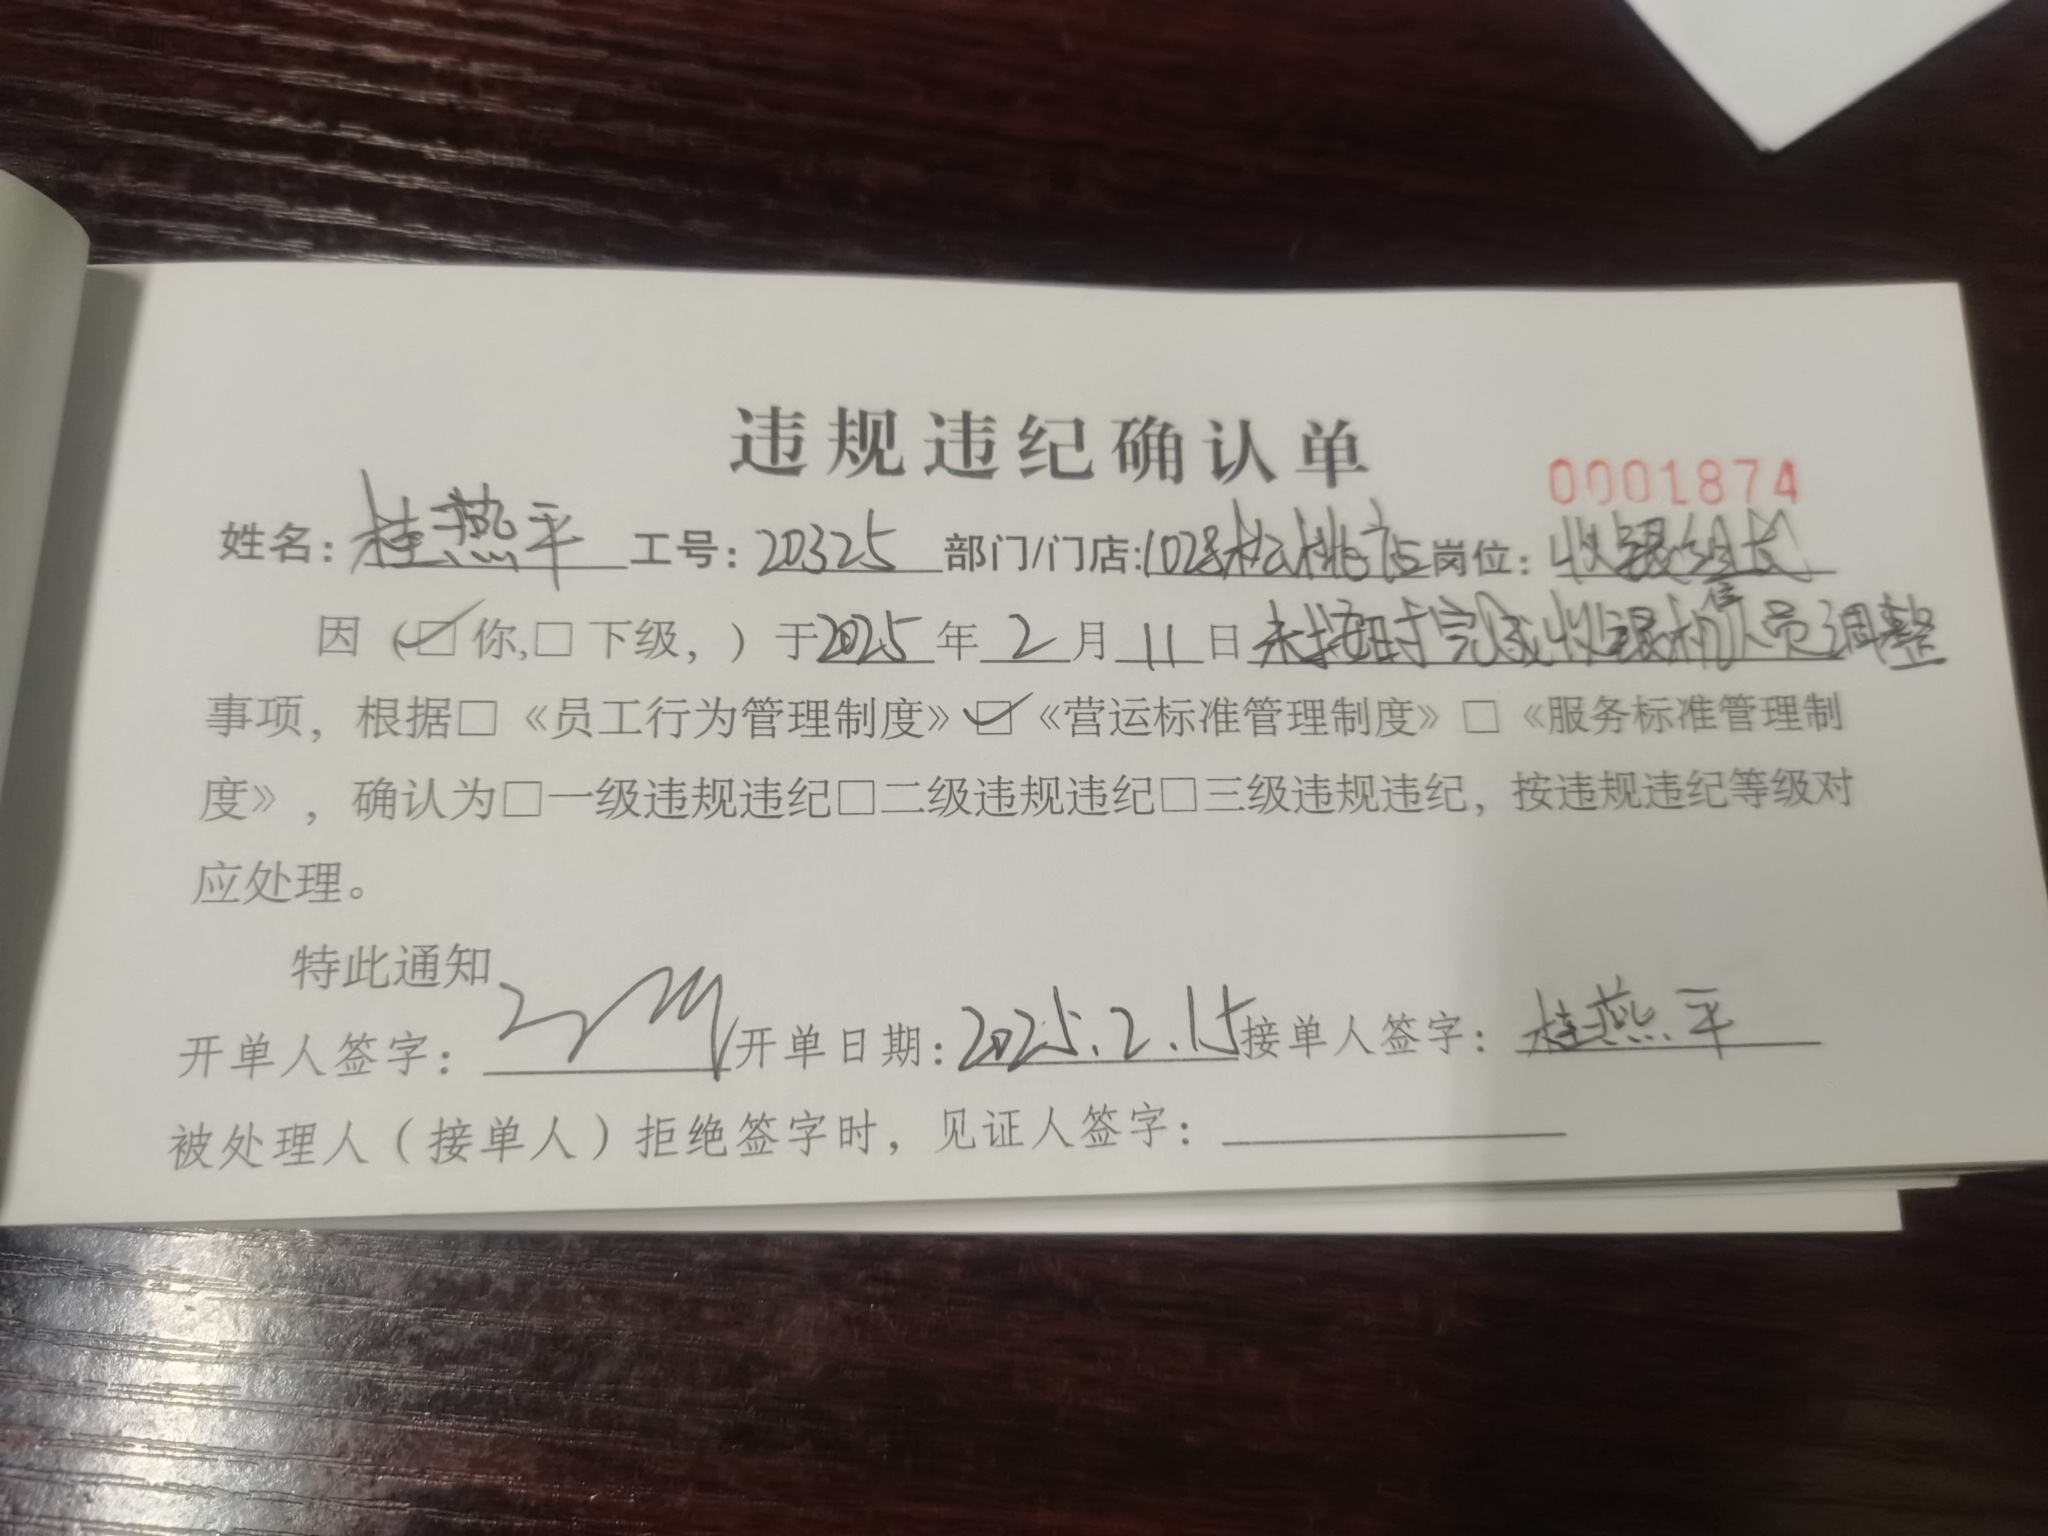 违规违纪确认单
0001874
姓名：桂燕平 工号：20325 部门/门店:1028松桃店 岗位：收银组长
因（☑你,□下级，）于2025年2月11日未按时完成收银机人员调整
事项，根据□《员工行为管理制度》☑《营运标准管理制度》□《服务标准管理制
度》，确认为□一级违规违纪□二级违规违纪□三级违规违纪，按违规违纪等级对
应处理。
特此通知
开单人签字： 开单日期：2025.2.15 接单人签字：桂燕平
被处理人（接单人）拒绝签字时，见证人签字：